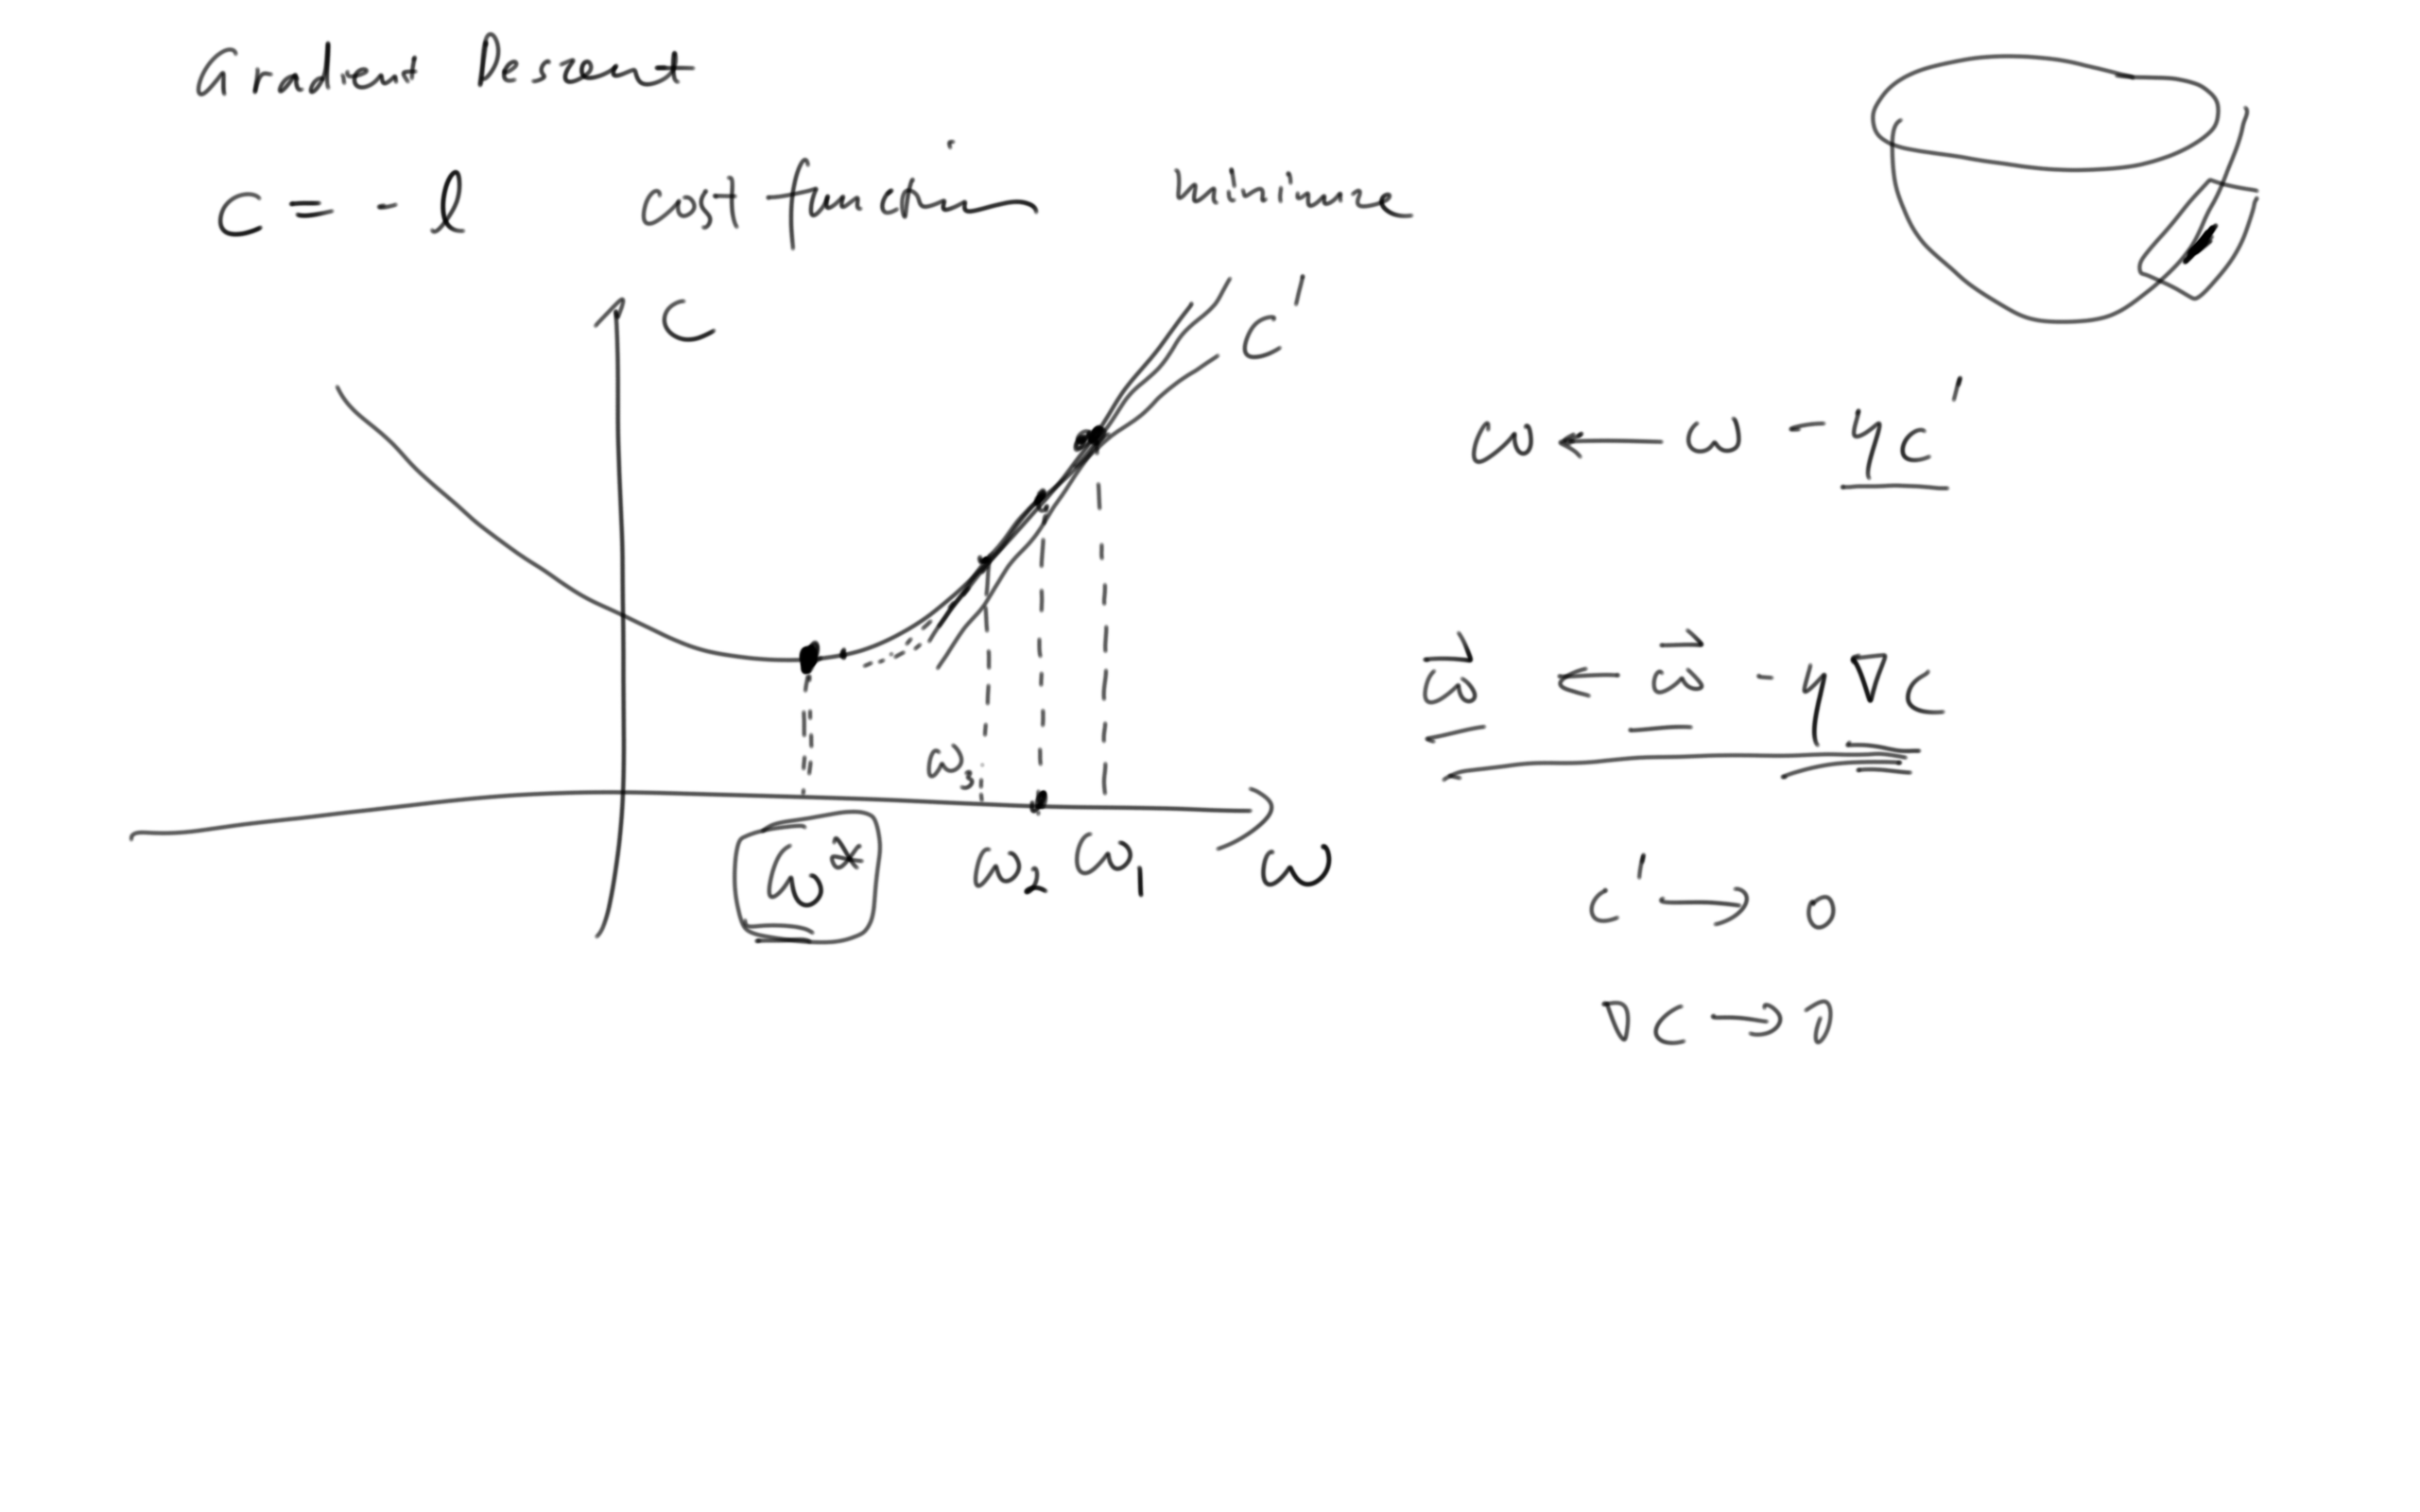 Gradient Descent
C = - l cost function minimize
C
C'
ω ← ω - ηC'
ω⃗ ← ω⃗ - η∇C
ω₃
ω* ω₂ ω₁ ω
C' → 0
∇C → 0